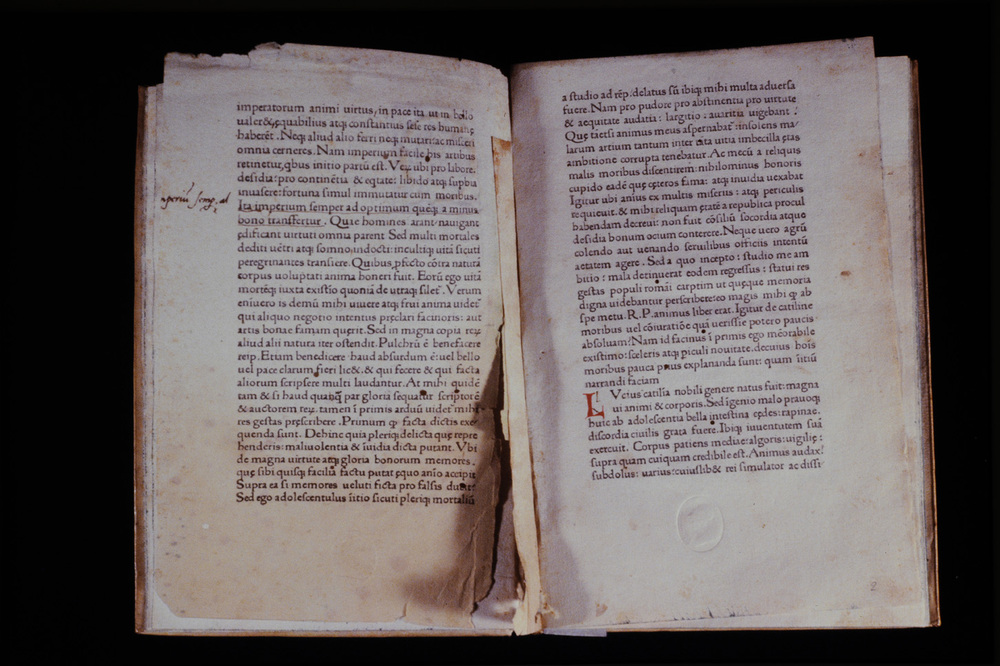 imperatorum animi uirtus, in pace ita ut in bello
ualer&, ęquabilius atq; constantius sese res humanę
haberēt. Neq; aliud alio ferri neq; mutari ac misceri
omnia cerneres. Nam imperium facile his artibus
retinetur, qbus initio partū est. Veꝝ ubi pro labore.
desidia: pro continētia & eqtate: libido atq; supbia
inuasere: fortuna simul immutatur cum moribus.
Ita imperium semper ad optimum quēq; a minus
bono transfertur. Quae homines arant nauigant
ędificant uirtuti omnia parent Sed multi mortales
dediti uētri atq; somno, indocti: incultiq; uitā sicuti
peregrinantes transiere. Quibus pfecto cōtra naturā
corpus uoluptati anima honeri fuit. Eorū ego uitā
mortēq; iuxta existio quoniā de utraq; silet. Verum
eniuero is demū mihi uiuere atq; frui anima uidet
qui aliquo negotio intentus pręclari facinoris: aut
artis bonae famam quęrit. Sed in magna copia reꝝ
aliud alii natura iter ostendit. Pulchrū ē benefacere
reip. Etiam benedicere haud absurdum ē: uel bello
uel pace clarum fieri lic&. & qui fecere & qui facta
aliorum scripsere multi laudantur. At mihi quidē
tam & si haud quaq̄ par gloria sequatur scriptorē
& auctorem reꝝ. tamen ī primis arduū uidet mihi
res gestas pręscribere. Primum q̄ facta dictis exe
quenda sunt. Dehinc quia pleriq; delicta quę repre
henderis: maliuolentia & īuidia dicta putant. Vbi
de magna uirtute atq; gloria bonorum memores.
quę sibi quisq; facilia factu putat ęquo anīo accipit
Supra ea si memores ueluti ficta pro falsis ducit
Sed ego adolescentulus īitio sicuti pleriq; mortaliū
a studio ad rēp. delatus sū ibiq; mihi multa aduersa
fuere. Nam pro pudore pro abstinentia pro uirtute
& aequitate audatia: largitio: auaritia uigebant:
Quę tâetsi animus meus aspernabat insolens ma/
larum artium tantum inter tāta uitia imbecilla ętas
ambitione corrupta tenebatur. Ac mecū a reliquis
malis moribus discentirem: nihilominus honoris
cupido eadē quę cęteros fama: atq; inuidia uexabat
Igitur ubi anius ex multis miseriis: atq; periculis
requieuit. & mihi reliquam ętatē a republica procul
habendam decreui: non fuit cōsiliū socordia atque
desidia bonum ocium conterere. Neque uero agrū
colendo aut uenando seruilibus officiis intentū
aetatem agere. Sed a quo incepto: studio me am
bitio: mala detinuerat eodem regressus: statui res
gestas populi romāi carptim ut quęque memoria
digna uidebantur perscribere: eo magis mihi q̄ ab
spe metu. R.P. animus liber erat. Igitur de catiline
moribus uel cōiuratiōe quā uerissie potero paucis
absoluam: Nam id facinus ī primis ego mēorabile
existimo: sceleris atq; piculi nouitate. de cuius hois
moribus pauca prius explananda sunt: quam īitiū
narrandi faciam
LVctus catilia nobili genere natus fuit: magna
ui animi & corporis. Sed īgenio malo prauoq;
huic ab adolescentia bella intestina cędes: rapinae.
discordia ciuilis grata fuere. Ibiq; iuuentutem suā
exercuit. Corpus patiens mediae: algoris: uigilię:
supra quam cuiquam credibile est. Animus audax:
subdolus: uarius: cuiuslib& rei simulator ac dissi
2